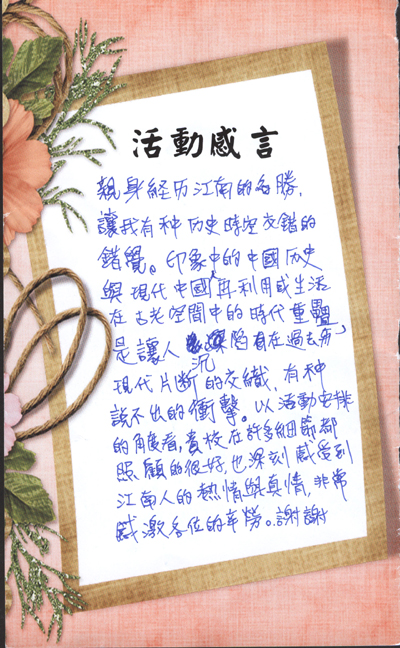 活動感言
親身經历江南的名勝,
讓我有种历史時空交錯的
錯覺。印象中的中國历史
與現代中國再利用或生活
在古老空間中的時代重疊
是讓人沉陷在過去與
現代片断的交織,有种
說不出的衝擊。以活動安排
的角度看,貴校在許多細節都
照顧的很好,也深刻感受到
江南人的熱情與真情,非常
感激各位的辛勞。謝謝